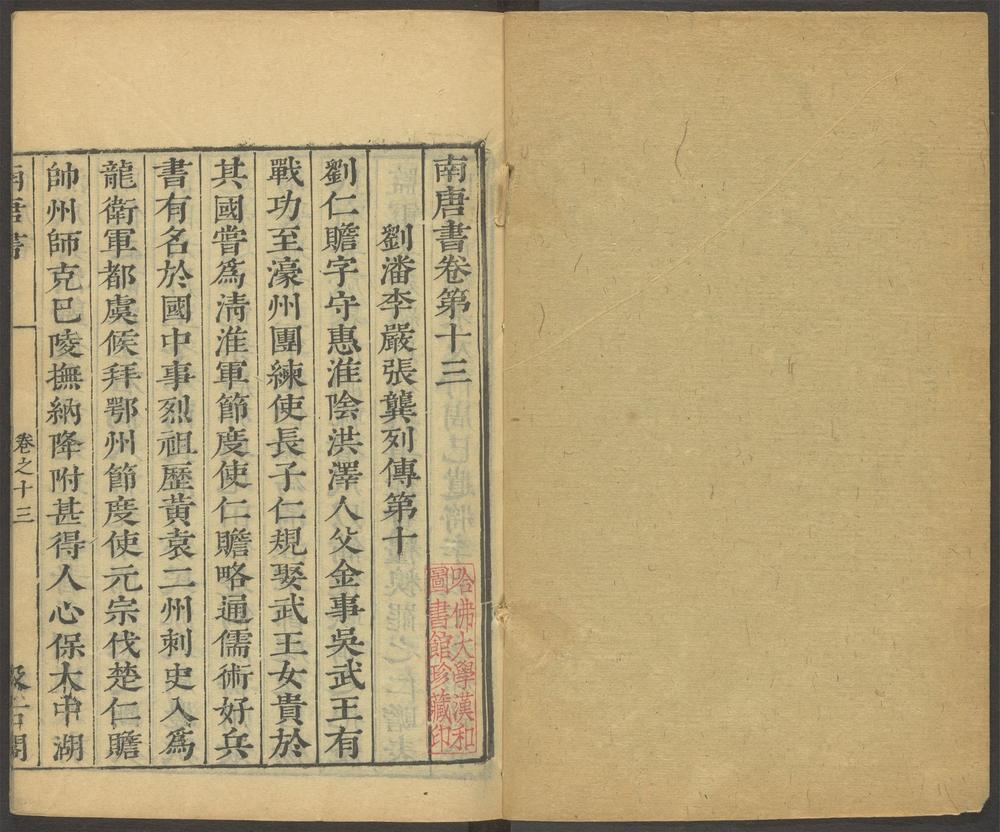 南唐書卷第十三
劉潘李嚴張龔列傳第十
劉仁贍字守惠淮陰洪澤人父金事吳武王有
戰功至濠州團練使長子仁規娶武王女貴於
其國嘗爲清淮軍節度使仁贍略通儒術好兵
書有名於國中事烈祖歷黃袁二州刺史入爲
龍衛軍都虞候拜鄂州節度使元宗伐楚仁贍
帥州師克巴陵撫納降附甚得人心保大中湖
南唐書
卷之十三
汲古閣
哈佛大學漢和
圖書館珍藏印